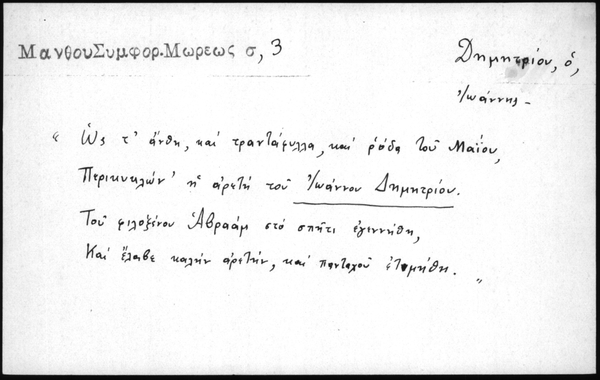 ΜανθουΣυμφορ.Μωρεως σ, 3
Δημητρίου, ὁ,
Ἰωάννης –
“ Ὡς τ' ἄνθη, καί τραντάφυλλα, καί ρόδα τοῦ Μαΐου,
Περικυκλών' ἡ ἀρετή τοῦ Ἰωάννου Δημητρίου.
Τοῦ φιλοξένου Ἀβραάμ στό σπῆτι ἐγεννήθη,
Καί ἔλαβε καλήν ἀρετήν, καί πανταχοῦ ἐτιμήθη. „